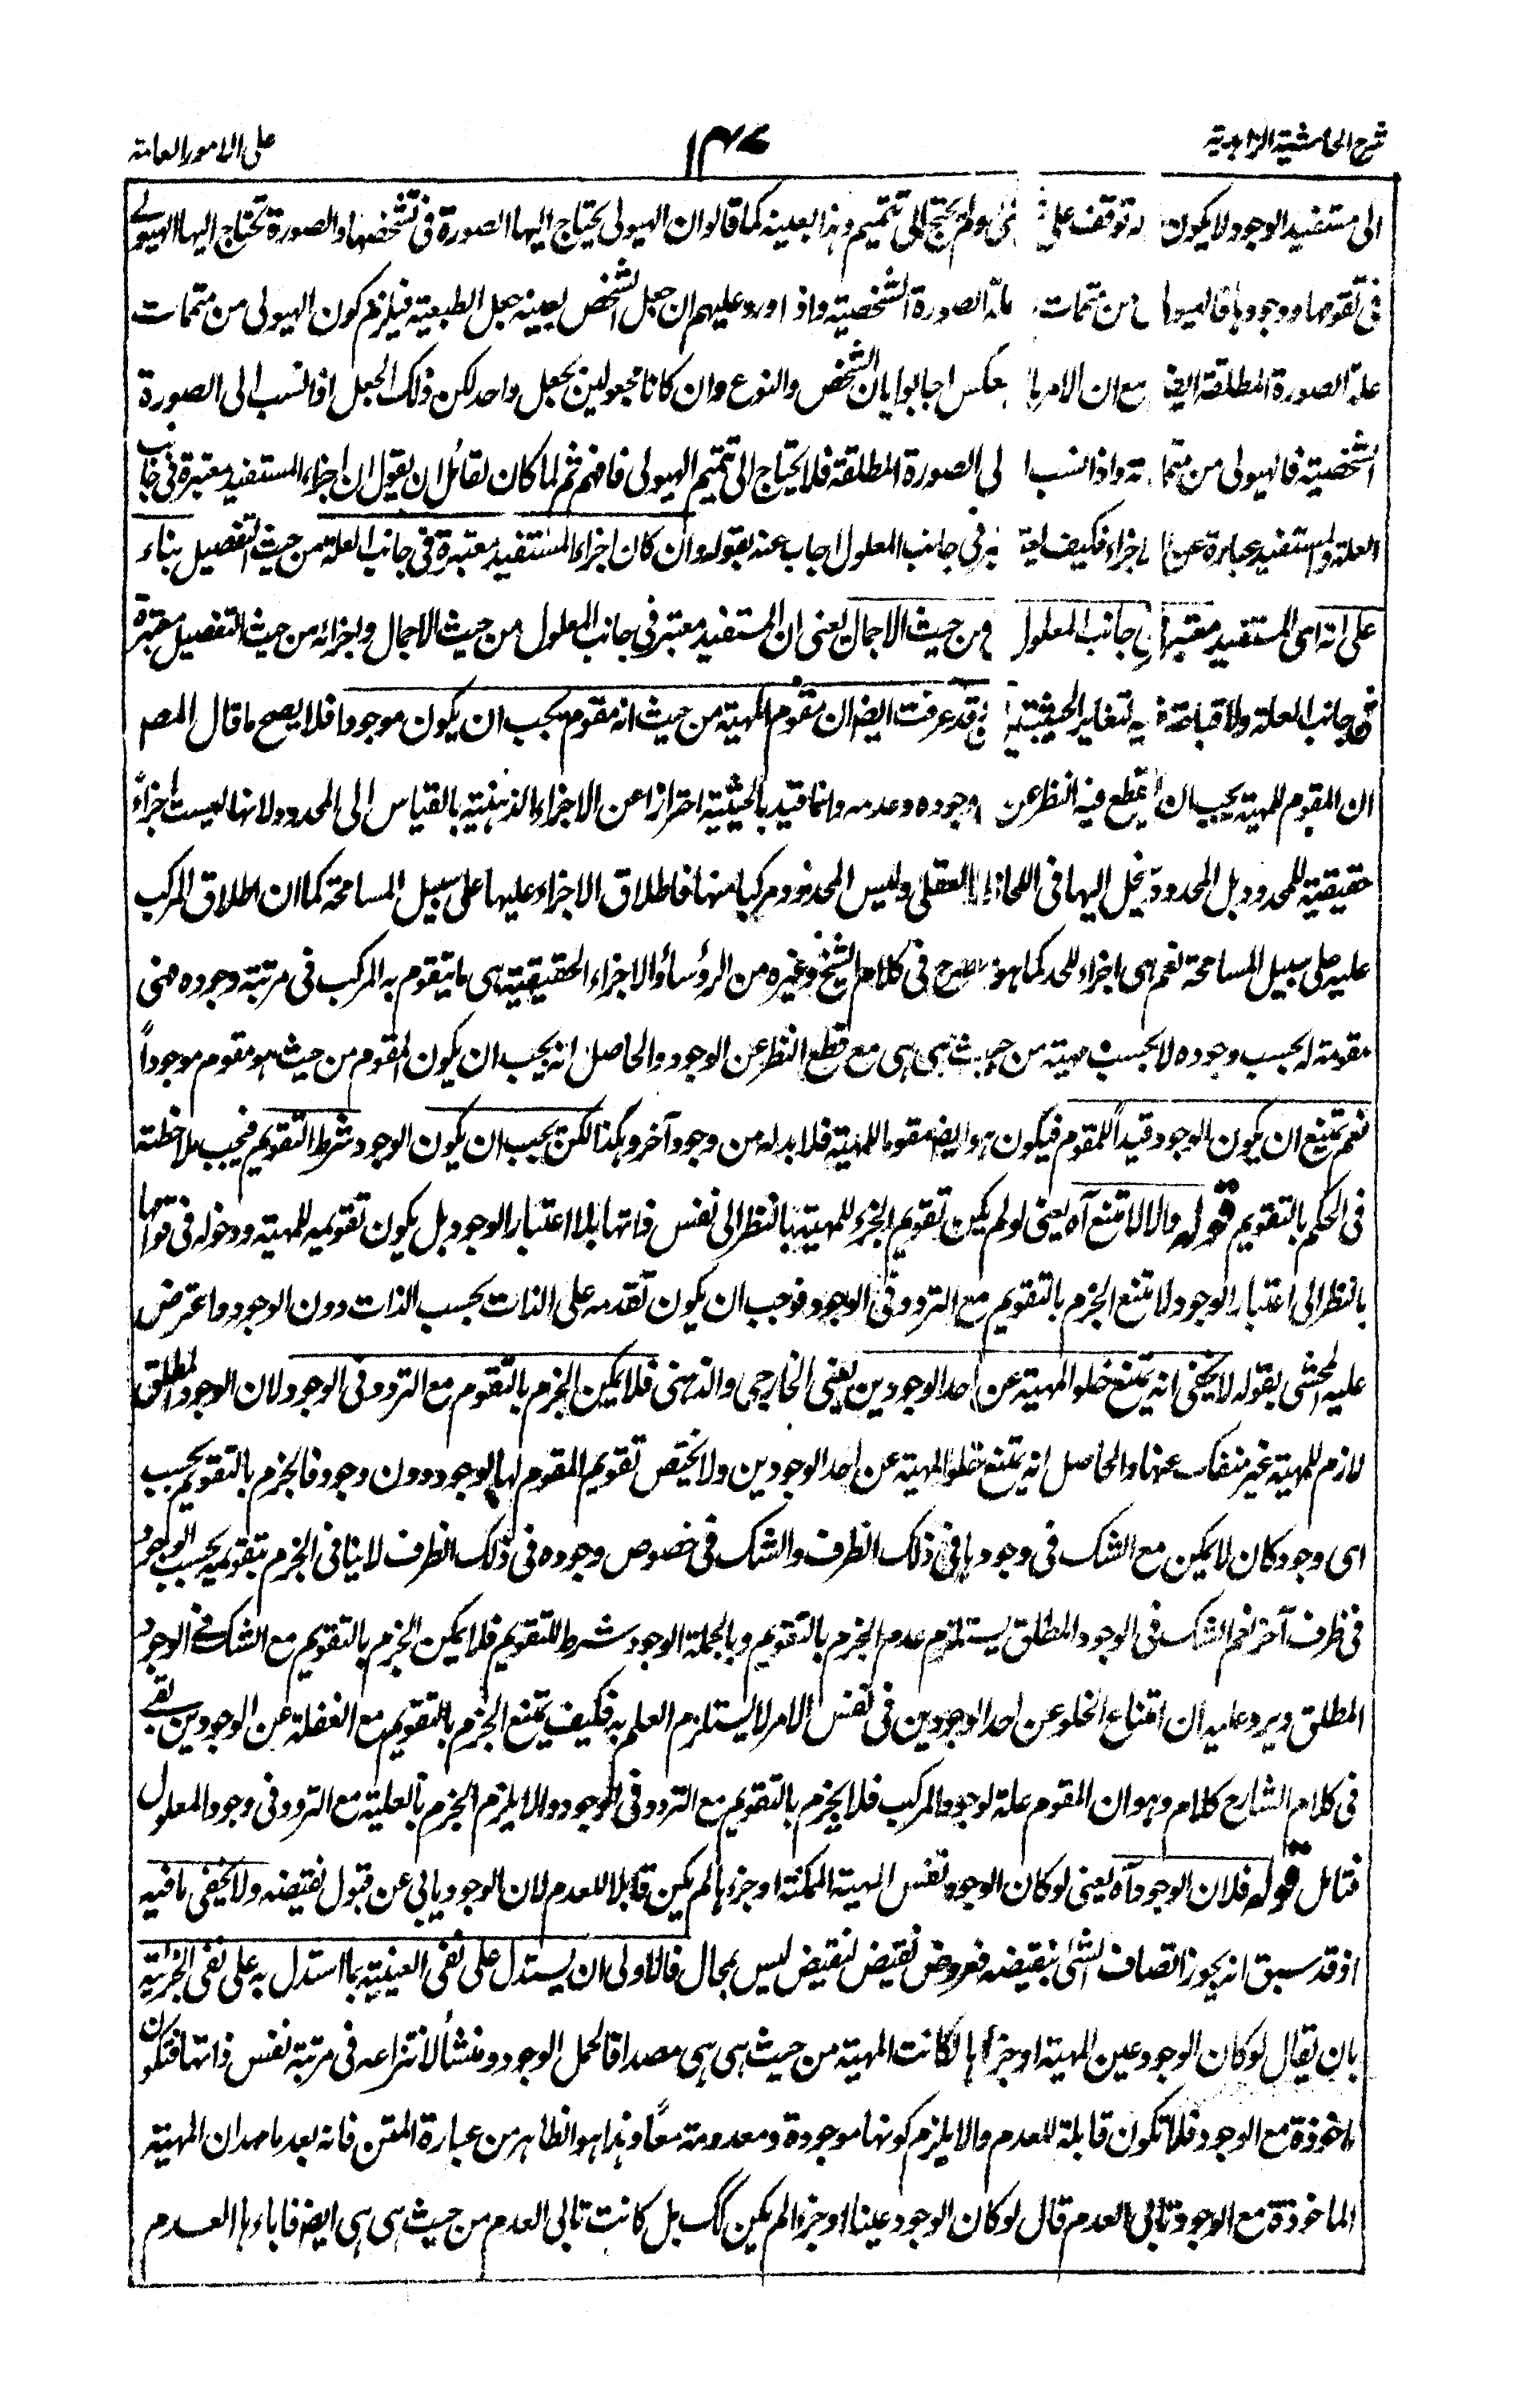 شرح الحاشية الزاهدية
١٣٧
على الامور العامة
الى مستفيد الوجود لا يكون له توقف على شئ ولم يحتج الى تتميم وهذا بعينه كما قالوا ان الهيولى يحتاج اليها الصورة فى تشخصها والصورة تحتاج اليها الهيولى
فى تقومها ووجودها فالهيولى من متمات علة الصورة الشخصية واذا اورد عليهم ان جعل الشخص بعينه جعل الطبعية فيلزم كون الهيولى من متمات
علة الصورة المطلقة ايضا مع ان الامر بالعكس اجابوا بان الشخص والنوع وان كانا مجعولين بجعل واحد لكن ذلك الجعل اذا نسب الى الصورة
الشخصية فالهيولى من متماته واذا نسب الى الصورة المطلقة فلا يحتاج الى تتميم الهيولى فافهم ثم لما كان لقائل ان يقول ان اجزاء المستفيد معتبرة فى جانب
العلة والمستفيد عبارة عن الاجزاء فكيف يعتبر فى جانب المعلول اجاب عنه بقوله وان كان اجزاء المستفيد معتبرة فى جانب العلة من حيث التفصيل بناء
على انه اى المستفيد معتبر فى جانب المعلول من حيث الاجمال يعنى ان المستفيد معتبر فى جانب المعلول من حيث الاجمال واجزائه من حيث التفصيل معتبرة
فى جانب العلة ولا قباحة فيه لتغاير الحيثيتين قد عرفت ايضا ان مقوم المهية من حيث انه مقوم يجب ان يكون موجودا فلا يصح ما قال المصـ
ان المقوم للمهية يجب ان يقطع فيه النظر عن وجوده وعدمه وانما قيد بالحيثية احترازا عن الاجزاء الذهنية بالقياس الى المحدود لانها ليست اجزاءً
حقيقية للمحدود بل المحدود ينحل اليها فى اللحاظ العقلى وليس المحدود مركبا منها فاطلاق الاجزاء عليها على سبيل المسامحة كما ان اطلاق المركب
عليه على سبيل المسامحة نعم هى اجزاء للحد كما هو مصرح فى كلام الشيخ وغيره من الرؤساء والاجزاء الحقيقية هى ما يتقوم به المركب فى مرتبة وجوده فهى
مقومة له بحسب وجوده لا بحسب مهية من حيث هى هى مع قطع النظر عن الوجود والحاصل انه يجب ان يكون المقوم من حيث هو مقوم موجوداً
نعم يمتنع ان يكون الوجود قيداً للمقوم فيكون هو ايضا مقوما للمهية فلا بد له من وجود آخر وهكذا لكن يجب ان يكون الوجود شرط التقويم فيجب ملاحظته
فى الحكم بالتقويم قوله والا لامتنع آه يعنى لو لم يكن تقويم الجزء للمهية بالنظر الى نفس ذاتها بلا اعتبار الوجود بل يكون تقويمه للمهية ودخوله فى قوامها
بالنظر الى اعتبار الوجود لامتنع الجزم بالتقويم مع التردد فى الوجود فوجب ان يكون تقدمه على الذات بحسب الذات دون الوجود واعترض
عليه المحشى بقوله لا يخفى انه يمتنع خلو المهية عن احد الوجودين يعنى الخارجى والذهنى فلا يمكن الجزم بالتقوم مع التردد فى الوجود لان الوجود المطلق
لازم للمهية غير منفك عنها والحاصل انه يمتنع خلو المهية عن احد الوجودين ولا يختص تقويم المقوم لها بوجود دون وجود فالجزم بالتقويم بحسب
اى وجود كان لا يمكن مع الشك فى وجودها فى ذلك الظرف والشك فى خصوص وجوده فى ذلك الظرف لا ينافى الجزم بتقويمه بحسب الوجود
فى ظرف آخر نعم الشك فى الوجود المطلق يستلزم عدم الجزم بالتقويم وبالجملة الوجود شرط للتقويم فلا يمكن الجزم بالتقويم مع الشك فى الوجود
المطلق ويرد عليه ان امتناع الخلو عن احد الوجودين فى نفس الامر لا يستلزم العلم به فكيف يمتنع الجزم بالتقويم مع الغفلة عن الوجودين بقى
فى كلام الشارح كلام وهو ان المقوم علة لوجود المركب فلا يجزم بالتقويم مع التردد فى الوجود والا يلزم الجزم بالعلية مع التردد فى وجود المعلول
فتامل قوله فلان الوجود آه يعنى لو كان الوجود نفس المهية الممكنة او جزءها لم يكن قابلا للعدم لان الوجود يابى عن قبول نقيضه ولا يخفى ما فيه
اذ قد سبق انه يجوز اتصاف الشئ بنقيضه فعروض نقيض لنقيض ليس بمحال فالاولى ان يستدل على نفى العينية بما استدل به على نفى الجزئية
بان يقال لو كان الوجود عين المهية او جزأها لكانت المهية من حيث هى هى مصداقا لحمل الوجود ومنشأ لانتزاعه فى مرتبة نفس ذاتها فتكون
ماخوذة مع الوجود فلا تكون قابلة للعدم والا يلزم كونها موجودة ومعدومة معاً وهذا هو الظاهر من عبارة المتن فانه بعد ما مهد ان المهية
الماخوذة مع الوجود تابى العدم قال لو كان الوجود عينا او جزءا لم يكن كك بل كانت تابى العدم من حيث هى هى ايضا فاباءها العدم